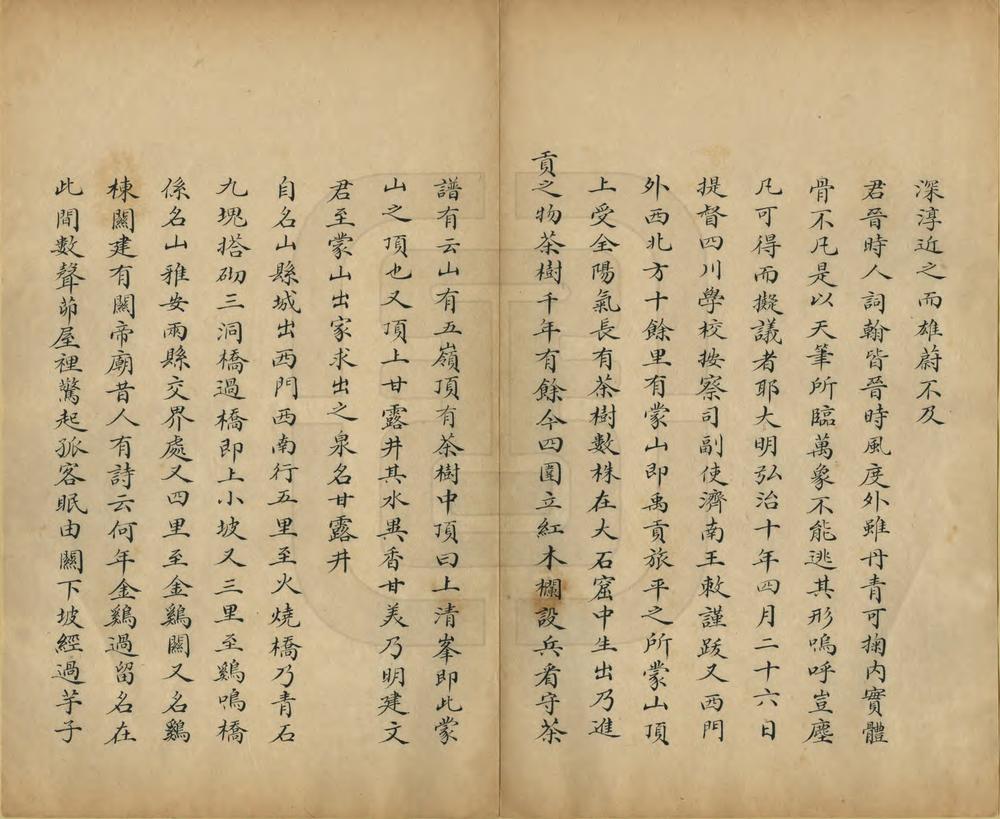 深淳近之而雄蔚不及
君晉時人詞翰皆晉時風度外雖丹青可掬内實體
骨不凡是以天筆所臨萬象不能逃其形嗚呼豈塵
凡可得而擬議者耶大明弘治十年四月二十六日
提督四川學校按察司副使濟南王敕謹跋又西門
外西北方十餘里有蒙山即禹貢旅平之所蒙山頂
上受全陽氣長有茶樹數株在大石窟中生出乃進
貢之物茶樹千年有餘今四圍立紅木欄設兵看守茶
譜有云山有五嶺頂有茶樹中頂曰上清峯即此蒙
山之頂也又頂上甘露井其水異香甘美乃明建文
君至蒙山出家求出之泉名甘露井
自名山縣城出西門西南行五里至火燒橋乃青石
九塊搭砌三洞橋過橋即上小坡又三里至鷄鳴橋
係名山雅安兩縣交界處又四里至金鷄關又名鷄
棟關建有關帝廟昔人有詩云何年金鷄過留名在
此間數聲茆屋裡驚起孤客眠由關下坡經過芋子